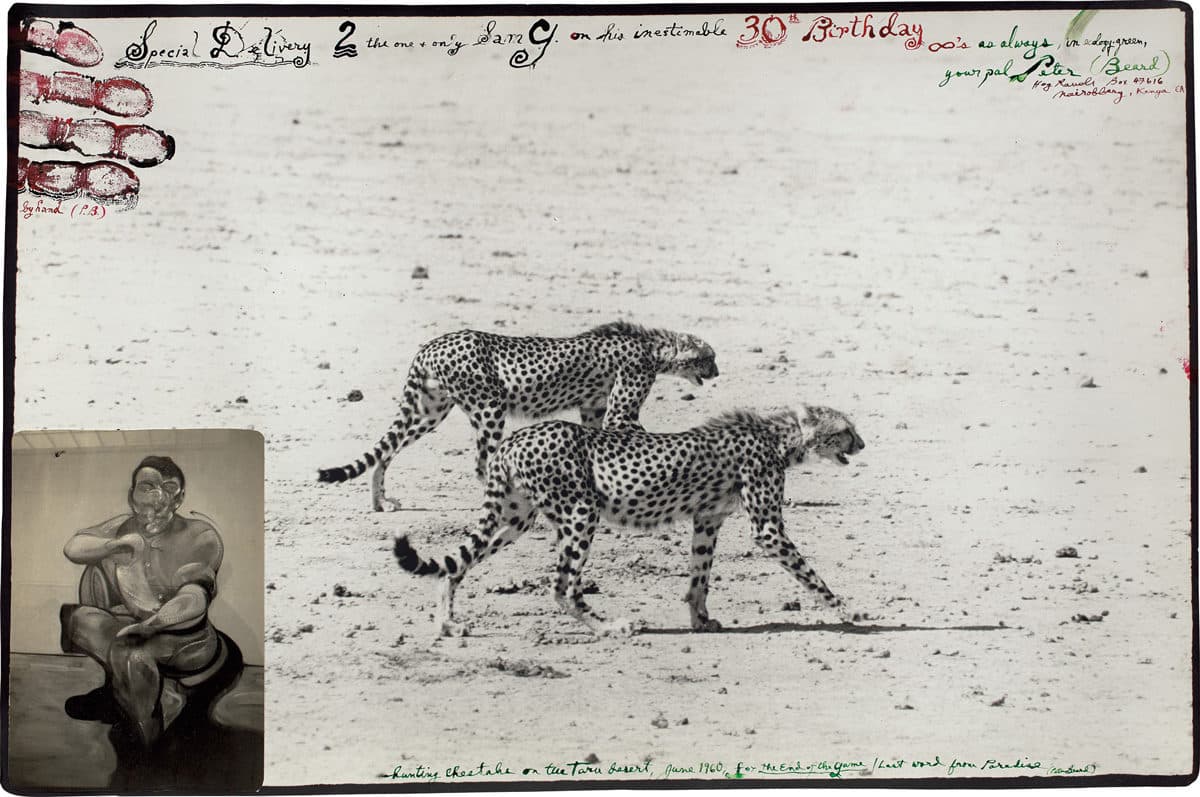 Special Delivery 2 the one + only Sam G. on his inestimable 30th Birthday ∞'s as always, in ecology-green,
your pal Peter (Beard)
Hog Ranch Box 47616
Nairobberg, Kenya EA
by hand (P.B.)
hunting cheetahs on the Taru desert, June 1960, for The End of the Game / Last word from Paradise